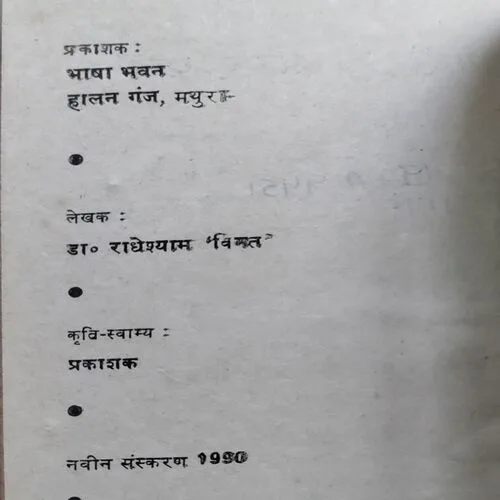 प्रकाशक :
भाषा भवन
हालन गंज, मथुरा
लेखक :
डा० राधेश्याम
कृति-स्वाम्य :
प्रकाशक
नवीन संस्करण 1990